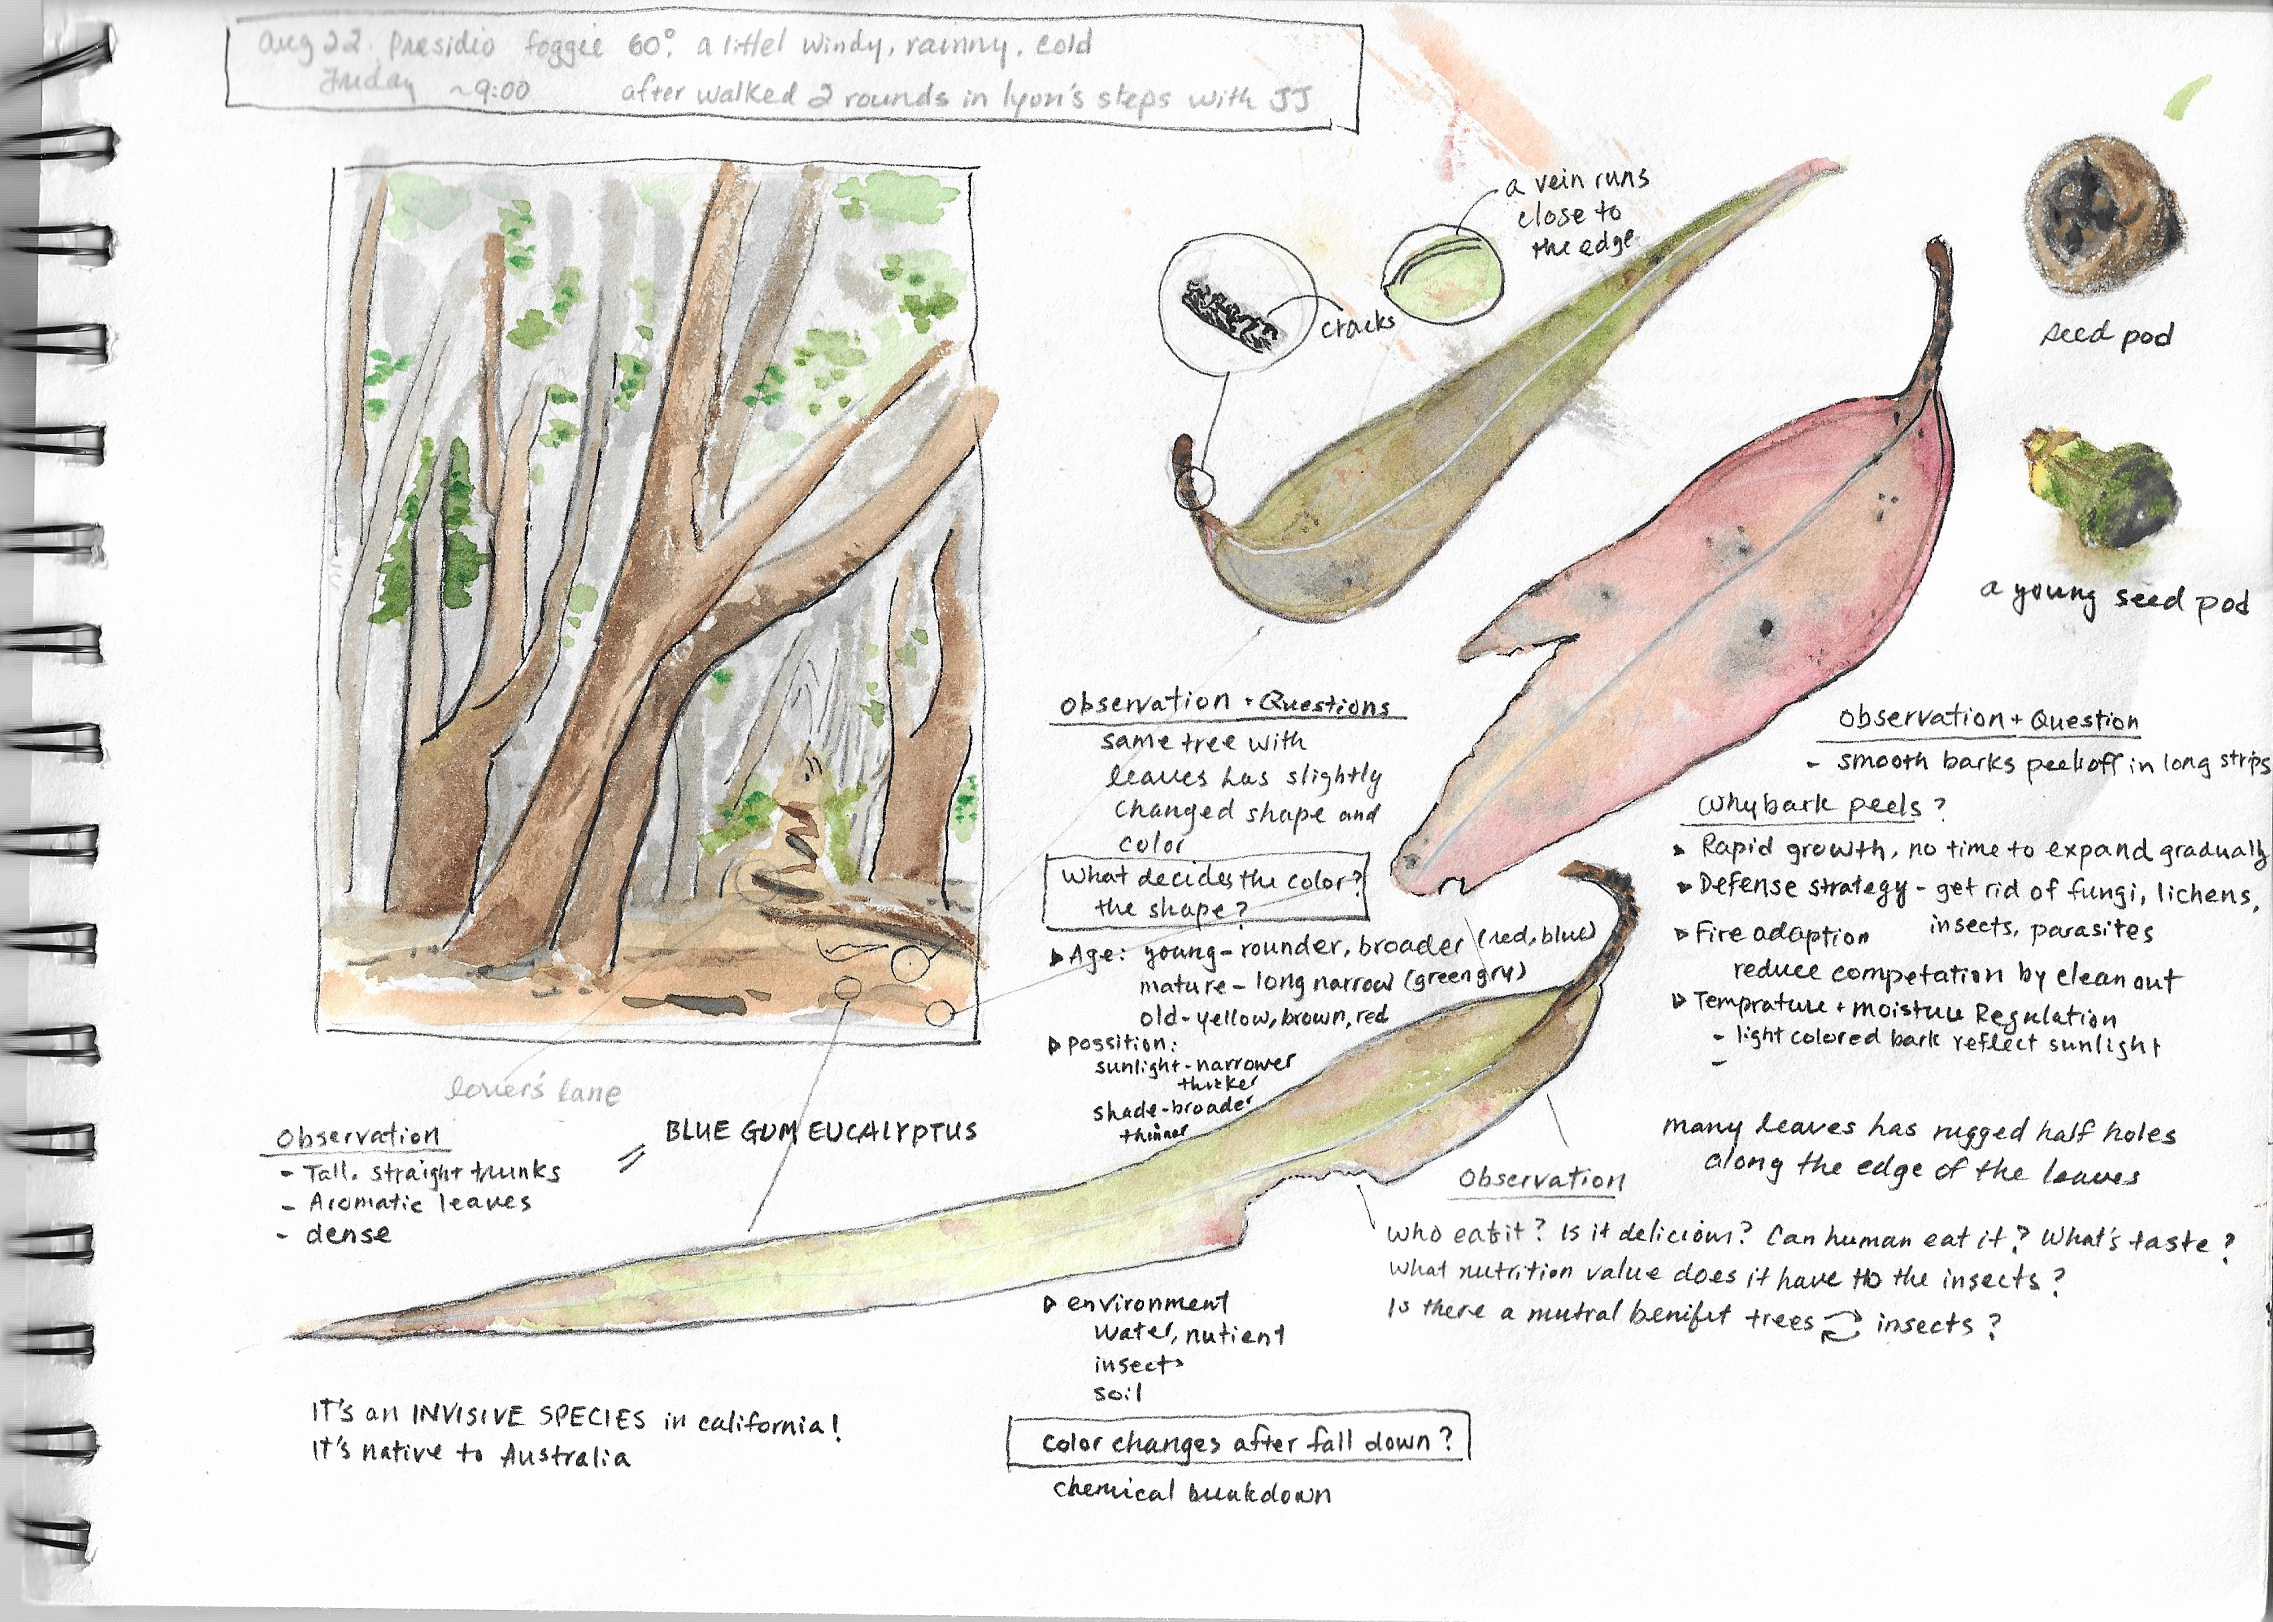 Aug 22. Presidio foggie 60° a littel windy, rainny, cold
Friday ~9:00 after walked 2 rounds in lyon's steps with JJ
a vein runs
close to
the edge
cracks
seed pod
a young seed pod
Observation + Questions
same tree with
leaves has slightly
changed shape and
color
What decides the color?
the shape?
Age: young - rounder, broader (red, blue)
mature - long narrow (green gry)
old - yellow, brown, red
Possition:
sunlight - narrower
thicker
shade - broader
thinner
Observation + Question
- smooth barks peel off in long strips
Why bark peels?
Rapid growth, no time to expand gradually
Defense strategy - get rid of fungi, lichens,
insects, parasites
Fire adaption
reduce competation by clean out
Temprature + moisture Regulation
- light colored bark reflect sunlight
-
many leaves has rugged half holes
along the edge of the leaves
Observation
Who eat it? Is it delicious? Can human eat it? What's taste?
What nutrition value does it have to the insects?
Is there a mutral benifit trees insects?
lover's Lane
Observation
- Tall. straight trunks
- Aromatic leaves
- dense
BLUE GUM EUCALYPTUS
environment
Water, nutient
insects
soil
IT's an INVISIVE SPECIES in california!
IT's native to Australia
Color changes after fall down?
chemical breakdown